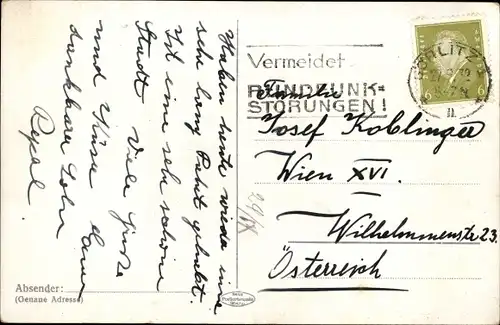 Haben heute wieder eine
sehr lange Fahrt gehabt.
Ist eine sehr schöne
Stadt Viele Grüße
und Küsse Euer
dankbarer Sohn
Absender:
(Genaue Adresse)
Vermeidet
RUNDFUNK=
STÖRUNGEN!
GÖRLITZ
6 6
Familie
Josef Koblinger
Wien XVI.
Wilhelminenstr 23.
Österreich